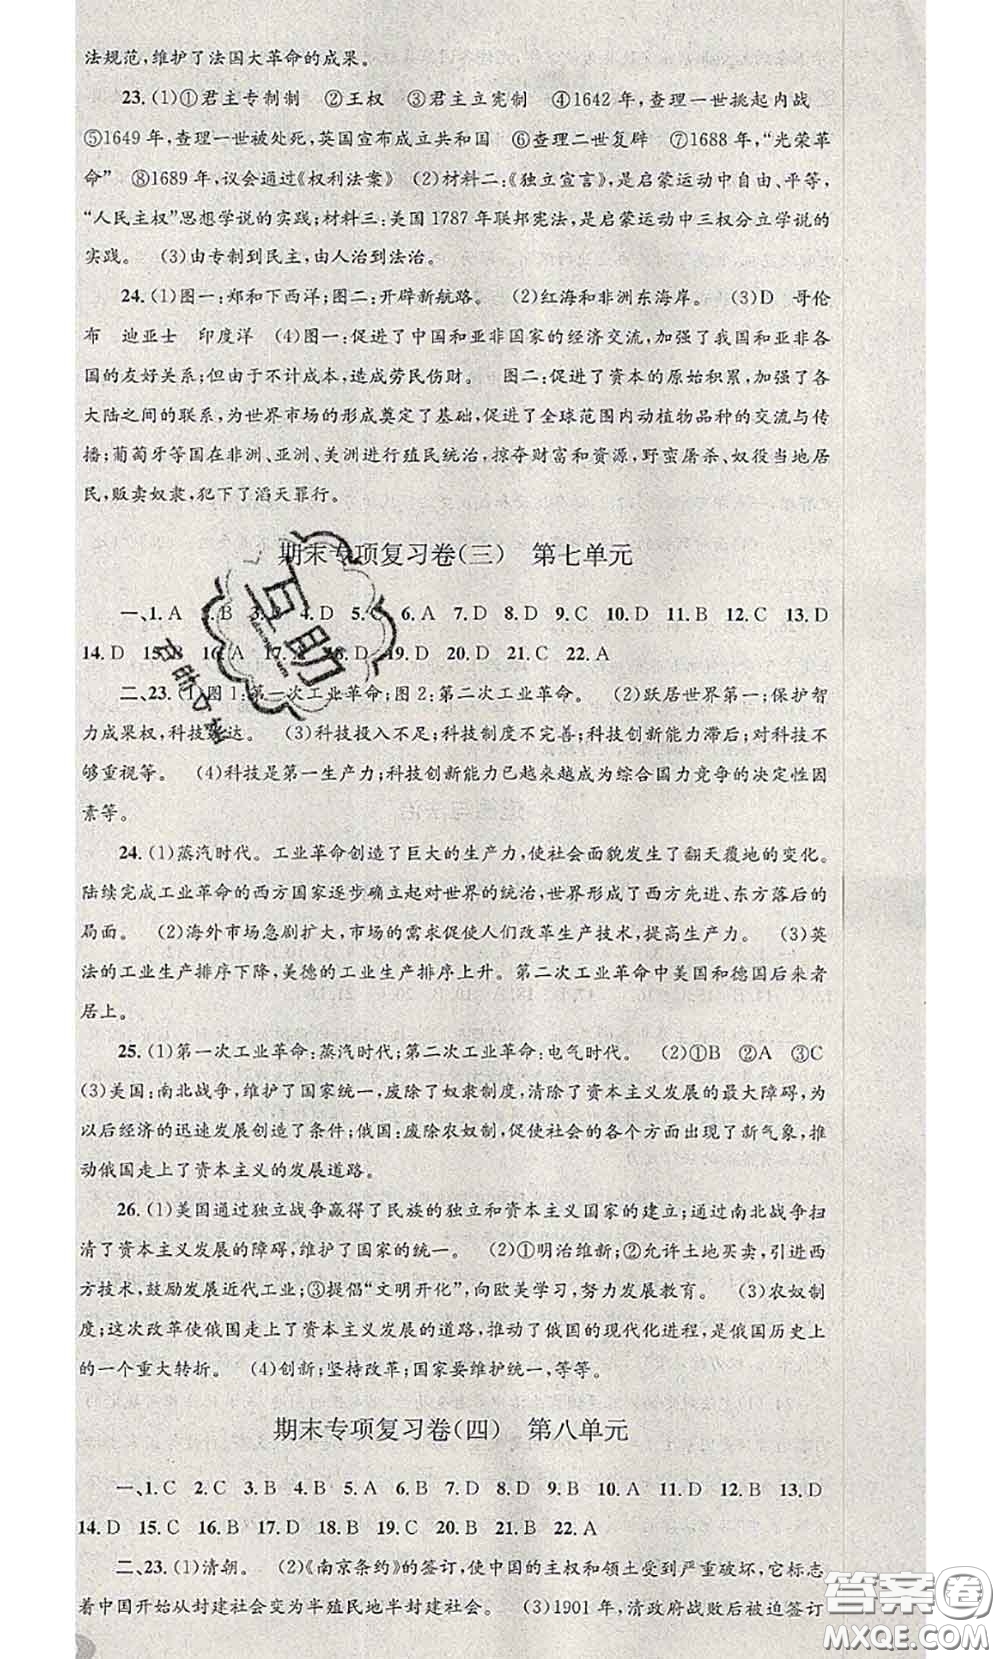 法规范,维护了法国大革命的成果。
23.(1)①君主专制制 ②王权 ③君主立宪制 ④1642年,查理一世挑起内战
⑤1649年,查理一世被处死,英国宣布成立共和国 ⑥查理二世复辟 ⑦1688年,“光荣革
命” ⑧1689年,议会通过《权利法案》 (2)材料二:《独立宣言》,是启蒙运动中自由、平等,
“人民主权”思想学说的实践;材料三:美国1787年联邦宪法,是启蒙运动中三权分立学说的
实践。 (3)由专制到民主,由人治到法治。
24.(1)图一:郑和下西洋;图二:开辟新航路。 (2)红海和非洲东海岸。 (3)D 哥伦
布 迪亚士 印度洋 (4)图一:促进了中国和亚非国家的经济交流,加强了我国和亚非各
国的友好关系;但由于不计成本,造成劳民伤财。 图二:促进了资本的原始积累,加强了各
大陆之间的联系,为世界市场的形成奠定了基础,促进了全球范围内动植物品种的交流与传
播;葡萄牙等国在非洲、亚洲、美洲进行殖民统治,掠夺财富和资源,野蛮屠杀、奴役当地居
民,贩卖奴隶,犯下了滔天罪行。
期末专项复习卷(三) 第七单元
一、1. A 2. B 3. 4. D 5. C 6. A 7. D 8. D 9. C 10. D 11. B 12. C 13. D
14. D 15. B 16. A 17. A 18. D 19. D 20. D 21. C 22. A
二、23.(1)图1:第一次工业革命;图2:第二次工业革命。 (2)跃居世界第一;保护智
力成果权,科技发达。 (3)科技投入不足;科技制度不完善;科技创新能力滞后;对科技不
够重视等。 (4)科技是第一生产力;科技创新能力已越来越成为综合国力竞争的决定性因
素等。
24.(1)蒸汽时代。工业革命创造了巨大的生产力,使社会面貌发生了翻天覆地的变化。
陆续完成工业革命的西方国家逐步确立起对世界的统治,世界形成了西方先进、东方落后的
局面。 (2)海外市场急剧扩大,市场的需求促使人们改革生产技术,提高生产力。 (3)英
法的工业生产排序下降,美德的工业生产排序上升。第二次工业革命中美国和德国后来者
居上。
25.(1)第一次工业革命:蒸汽时代;第二次工业革命:电气时代。 (2)①B ②A ③C
(3)美国:南北战争,维护了国家统一,废除了奴隶制度,清除了资本主义发展的最大障碍,为
以后经济的迅速发展创造了条件;俄国:废除农奴制,促使社会的各个方面出现了新气象,推
动俄国走上了资本主义的发展道路。
26.(1)美国通过独立战争赢得了民族的独立和资本主义国家的建立;通过南北战争扫
清了资本主义发展的障碍,维护了国家的统一。 (2)①明治维新;②允许土地买卖,引进西
方技术,鼓励发展近代工业;③提倡“文明开化”,向欧美学习,努力发展教育。 (3)农奴制
度;这次改革使俄国走上了资本主义发展的道路,推动了俄国的现代化进程,是俄国历史上
的一个重大转折。 (4)创新;坚持改革;国家要维护统一,等等。
期末专项复习卷(四) 第八单元
一、1. C 2. C 3. B 4. B 5. A 6. B 7. B 8. D 9. B 10. A 11. D 12. B 13. D
14. D 15. C 16. B 17. D 18. B 19. C 20. B 21. B 22. A
二、23.(1)清朝。 (2)《南京条约》的签订,使中国的主权和领土受到严重破坏,它标志
着中国开始从封建社会变为半殖民地半封建社会。 (3)1901年,清政府战败后被迫签订
互助
答案卷
MXQE.COM